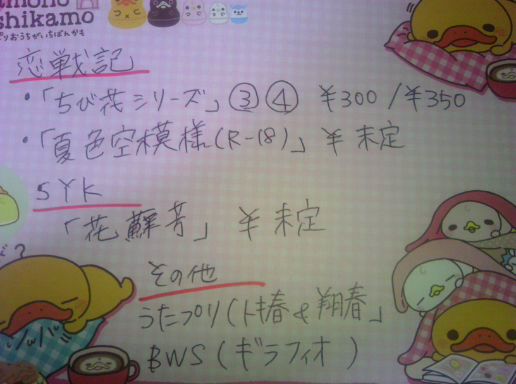 shikamo
恋戦記
・「ちび花シリーズ」③④ ¥300/¥350
・「夏色空模様(R-18)」¥未定
SYK
「花蘇芳」 ¥未定
その他
うたプリ(トキ春&翔春」
BWS(ギラフィオ)